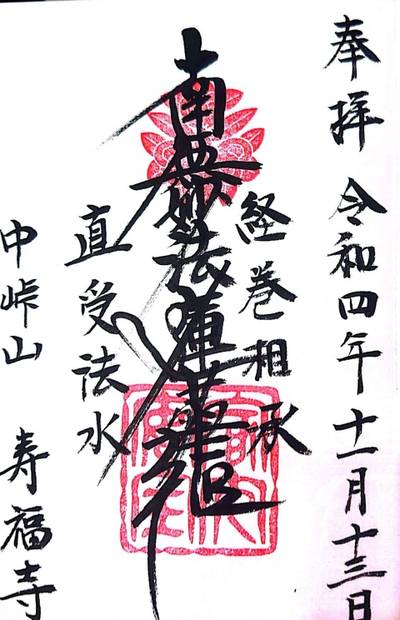 奉拝 令和四年十一月十三日
経巻相承
南無妙法蓮華経
直受法水
中峠山 寿福寺